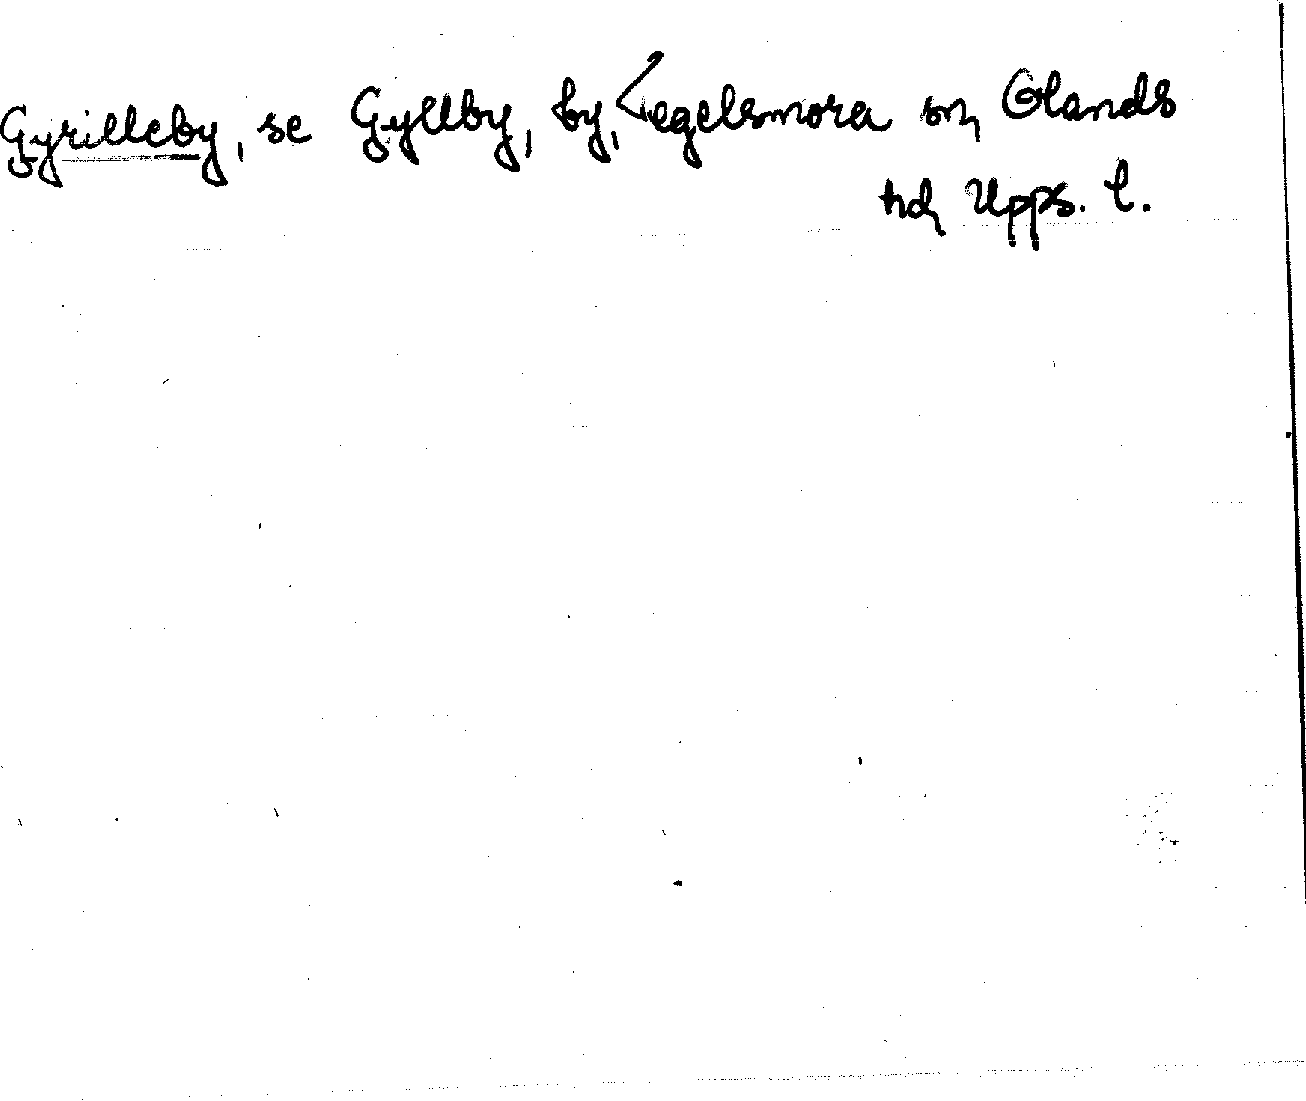 Gyrilleby, se Gyllby, by, Tegelsmora sn, Olands
hd, Upps. l.